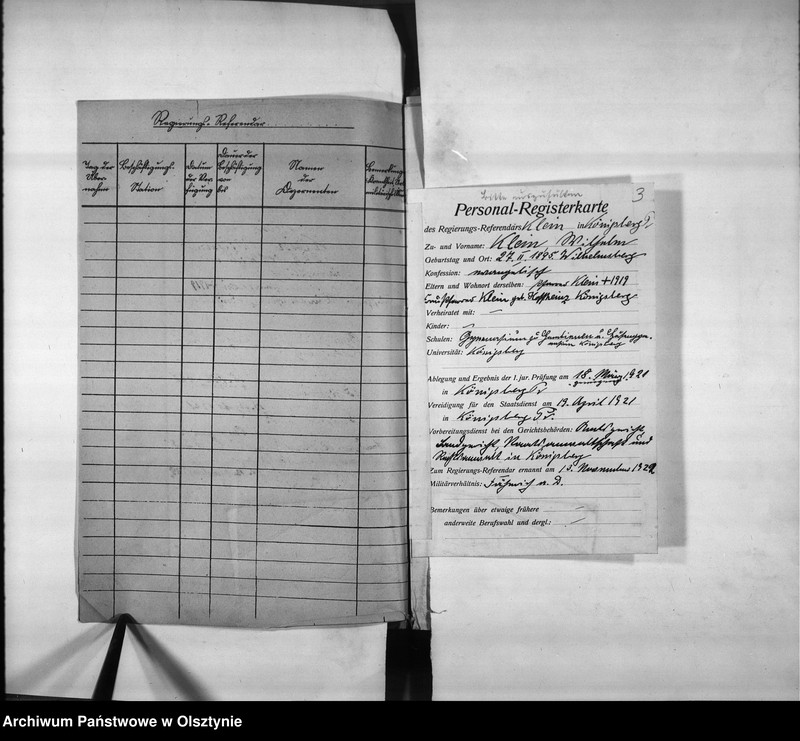 Regierungs-Referendar
Tag der Übernahme
Beschäftigungs-Station
Datum der Verfügung
Dauer der Beschäftigung von bis
Namen der Dezernenten
Bitte auszufüllen
3
Personal-Registerkarte
des Regierungs-Referendars Klein in Königsberg Pr.
Zu- und Vorname: Klein, Wilhelm
Geburtstag und Ort: 27. II. 1895. Wilhelmsberg
Konfession: evangelisch
Eltern und Wohnort derselben: Pfarrer Klein + 1919
Frau Pfarrer Klein geb. Königsberg
Verheiratet mit: —
Kinder: —
Schulen: Gymnasium zu Gumbinnen u.
Universität: Königsberg
Ablegung und Ergebnis der 1. jur. Prüfung am 18. März 1921
in Königsberg Pr.
Vereidigung für den Staatsdienst am 19. April 1921
in Königsberg Pr.
Vorbereitungsdienst bei den Gerichtsbehörden: Amtsgericht,
Landgericht, Staatsanwaltschaft und
Rechtsanwalt in Königsberg
Zum Regierungs-Referendar ernannt am 15. November 1922
Militärverhältnis: Fähnrich a. D.
Bemerkungen über etwaige frühere —
anderweite Berufswahl und dergl.: —
Archiwum Państwowe w Olsztynie